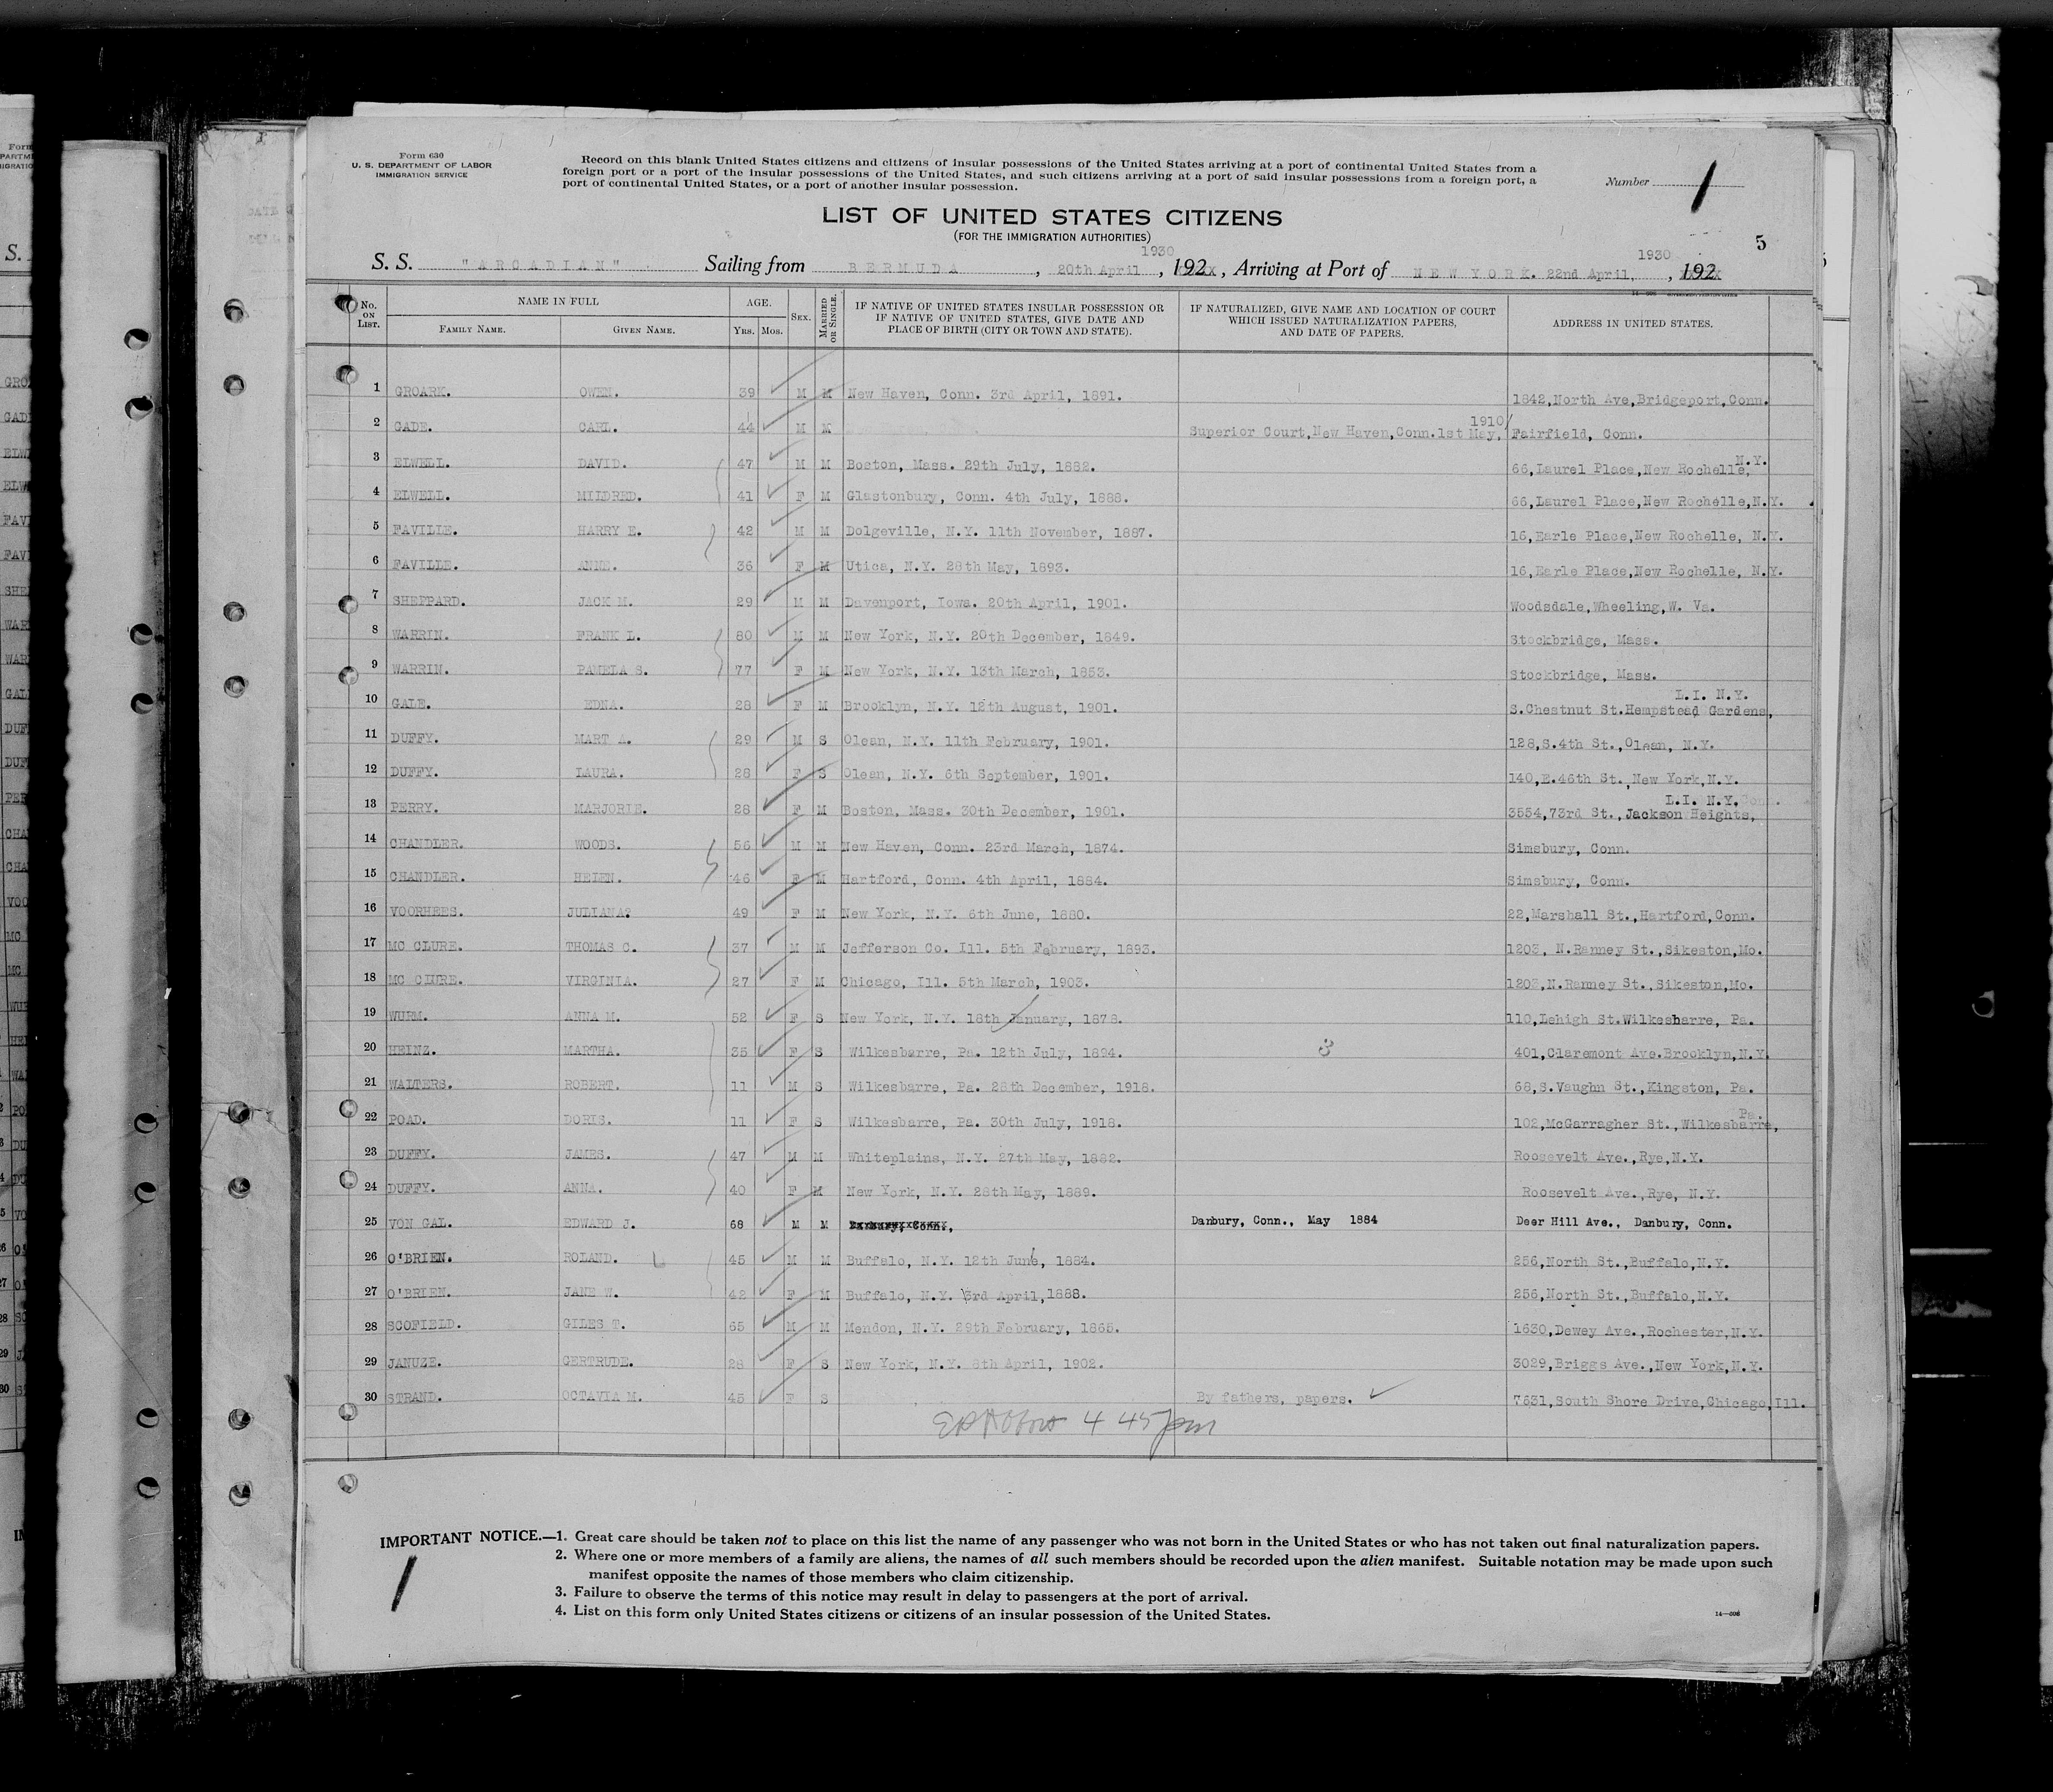 Form 630
U. S. DEPARTMENT OF LABOR
IMMIGRATION SERVICE
Record on this blank United States citizens and citizens of insular possessions of the United States arriving at a port of continental United States from a
foreign port or a port of the insular possessions of the United States, and such citizens arriving at a port of said insular possessions from a foreign port, a
port of continental United States, or a port of another insular possession.
Number 1
LIST OF UNITED STATES CITIZENS
(FOR THE IMMIGRATION AUTHORITIES)
5
S. S. "ARCADIAN" Sailing from BERMUDA, 20th April, 1930 192, Arriving at Port of NEW YORK. 22nd April, 1930, 192
No. ON LIST. NAME IN FULL FAMILY NAME. GIVEN NAME. AGE. YRS. MOS. SEX. MARRIED OR SINGLE. IF NATIVE OF UNITED STATES INSULAR POSSESSION OR IF NATIVE OF UNITED STATES, GIVE DATE AND PLACE OF BIRTH (CITY OR TOWN AND STATE). IF NATURALIZED, GIVE NAME AND LOCATION OF COURT WHICH ISSUED NATURALIZATION PAPERS, AND DATE OF PAPERS. ADDRESS IN UNITED STATES.
1 GROARK. OWEN. 39 M M New Haven, Conn. 3rd April, 1891. 1842,North Ave,Bridgeport,Conn.
2 GADE. CARL. 44 M M Superior Court,New Haven,Conn.1st May, 1910 Fairfield, Conn.
3 ELWELL. DAVID. 47 M M Boston, Mass. 29th July, 1882. 66,Laurel Place,New Rochelle, N.Y.
4 ELWELL. MILDRED. 41 F M Glastonbury, Conn. 4th July, 1888. 66,Laurel Place,New Rochelle,N.Y.
5 FAVILLE. HARRY E. 42 M M Dolgeville, N.Y. 11th November, 1887. 16,Earle Place,New Rochelle, N.Y.
6 FAVILLE. ANNE. 36 F M Utica, N.Y. 28th May, 1893. 16,Earle Place,New Rochelle, N.Y.
7 SHEPPARD. JACK M. 29 M M Davenport, Iowa. 20th April, 1901. Woodsdale,Wheeling,W. Va.
8 WARRIN. FRANK L. 80 M M New York, N.Y. 20th December, 1849. Stockbridge, Mass.
9 WARRIN. PAMELA S. 77 F M New York, N.Y. 13th March, 1853. Stockbridge, Mass.
10 GALE. EDNA. 28 F M Brooklyn, N.Y. 12th August, 1901. S.Chestnut St.Hempstead Gardens, L.I. N.Y.
11 DUFFY. MART A. 29 M S Olean, N.Y. 11th February, 1901. 128,S.4th St.,Olean, N.Y.
12 DUFFY. LAURA. 28 F S Olean, N.Y. 6th September, 1901. 140,E.46th St.,New York,N.Y.
13 PERRY. MARJORIE. 28 F M Boston, Mass. 30th December, 1901. 3554,73rd St.,Jackson Heights, L.I. N.Y.
14 CHANDLER. WOODS. 56 M M New Haven, Conn. 23rd March, 1874. Simsbury, Conn.
15 CHANDLER. HELEN. 46 F M Hartford, Conn. 4th April, 1884. Simsbury, Conn.
16 VOORHEES. JULIANA? 49 F M New York, N.Y. 6th June, 1880. 22,Marshall St.,Hartford,Conn.
17 MC CLURE. THOMAS C. 37 M M Jefferson Co. Ill. 5th February, 1893. 1203, N.Ranney St.,Sikeston,Mo.
18 MC CLURE. VIRGINIA. 27 F M Chicago, Ill. 5th March, 1903. 1203,N.Ranney St.,Sikeston,Mo.
19 WURM. ANNA M. 52 F S New York, N.Y. 18th January, 1878. 110,Lehigh St.Wilkesbarre, Pa.
20 HEINZ. MARTHA. 35 F S Wilkesbarre, Pa. 12th July, 1894. 3 401,Claremont Ave.Brooklyn,N.Y.
21 WALTERS. ROBERT. 11 M S Wilkesbarre, Pa. 28th December, 1918. 68,S.Vaughn St.,Kingston, Pa.
22 POAD. DORIS. 11 F S Wilkesbarre, Pa. 30th July, 1918. 102,McGarragher St.,Wilkesbarre, Pa.
23 DUFFY. JAMES. 47 M M Whiteplains, N.Y. 27th May, 1882. Roosevelt Ave.,Rye,N.Y.
24 DUFFY. ANNA. 40 F M New York, N.Y. 28th May, 1889. Roosevelt Ave.,Rye, N.Y.
25 VON GAL. EDWARD J. 68 M M Danbury, Conn., Danbury, Conn., May 1884 Deer Hill Ave., Danbury, Conn.
26 O'BRIEN. ROLAND. 45 M M Buffalo, N.Y. 12th June, 1884. 256,North St.,Buffalo,N.Y.
27 O'BRIEN. JANE W. 42 F M Buffalo, N.Y. 3rd April,1888. 256,North St.,Buffalo,N.Y.
28 SCOFIELD. GILES T. 65 M M Mendon, N.Y. 29th February, 1865. 1630,Dewey Ave.,Rochester,N.Y.
29 JANUZE. GERTRUDE. 28 F S New York, N.Y. 8th April, 1902. 3029,Briggs Ave.,New York,N.Y.
30 STRAND. OCTAVIA M. 45 F S By fathers, papers. 7631,South Shore Drive,Chicago,Ill.
4 45 pm
IMPORTANT NOTICE.—1. Great care should be taken not to place on this list the name of any passenger who was not born in the United States or who has not taken out final naturalization papers.
2. Where one or more members of a family are aliens, the names of all such members should be recorded upon the alien manifest. Suitable notation may be made upon such
manifest opposite the names of those members who claim citizenship.
3. Failure to observe the terms of this notice may result in delay to passengers at the port of arrival.
4. List on this form only United States citizens or citizens of an insular possession of the United States.
1